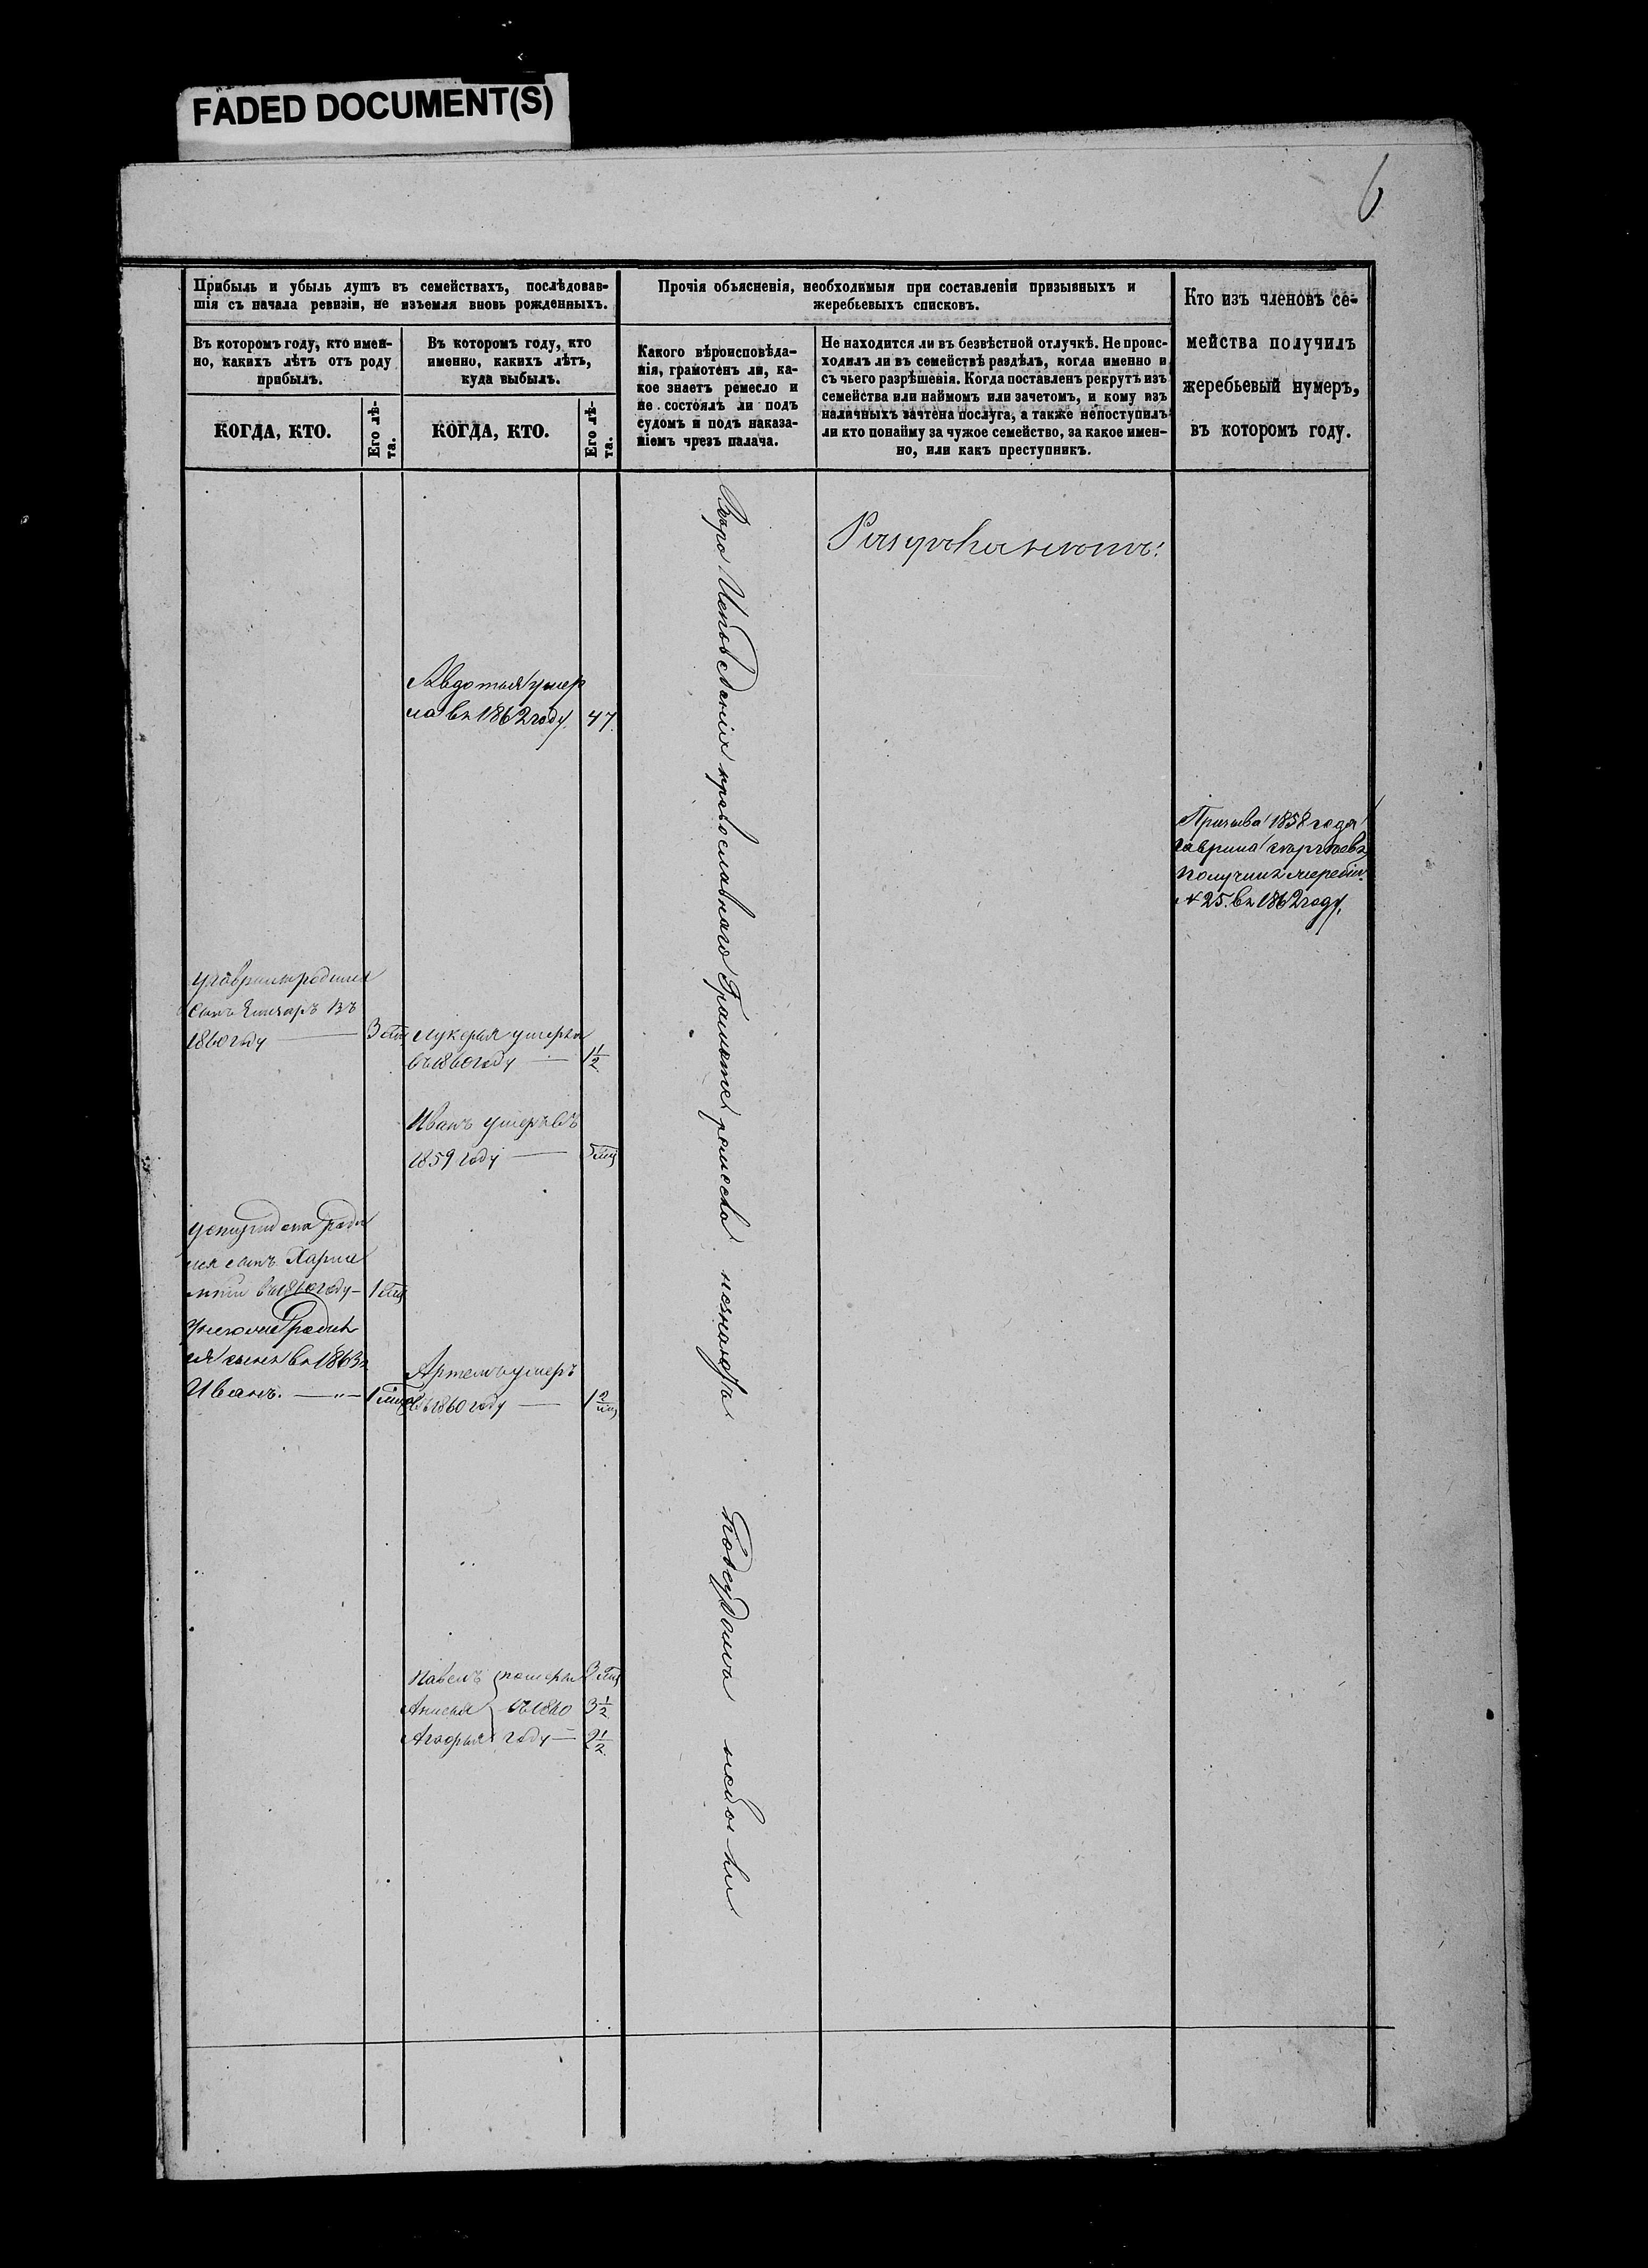 FADED DOCUMENT(S)
6
Прибыль и убыль душъ въ семействахъ, послѣдовав-
шія съ начала ревизіи, не изъемля вновь рожденныхъ.
Прочія объясненія, необходимыя при составленіи призывныхъ и
жеребьевыхъ списковъ.
Кто изъ членовъ се-
мейства получилъ
жеребьевый нумеръ,
въ которомъ году.
Въ которомъ году, кто имен-
но, какихъ лѣтъ отъ роду
прибылъ.
Въ которомъ году, кто
именно, какихъ лѣтъ,
куда выбылъ.
Какого вѣроисповѣда-
нія, грамотенъ ли, ка-
кое знаетъ ремесло и
не состоялъ ли подъ
судомъ и подъ наказа-
ніемъ чрезъ палача.
Не находится ли въ безвѣстной отлучкѣ. Не проис-
ходилъ ли въ семействѣ раздѣлъ, когда именно и
съ чьего разрѣшенія. Когда поставленъ рекрутъ изъ
семейства или наймомъ или зачетомъ, и кому изъ
наличныхъ зачтена послуга, а также непоступилъ
ли кто понайму за чужое семейство, за какое имен-
но, или какъ преступникъ.
КОГДА, КТО.
Его лѣ-
та.
КОГДА, КТО.
Его лѣ-
та.
Авдотья умер
ла въ 1862 году. 47.
Призыва 1858 года
Гаврила
получилъ жеребій
№ 25. въ 1862 году.
у Гаврилы родился
сынъ въ
1860 году — 3
Лукерья умерла
въ 1860 году — 1 1/2
Иванъ умеръ въ
1859 году —
роди
лся сынъ Харла
мпій въ 1860 году — 1
родил
ся сынъ въ 1863
Иванъ. — " — 1
Артемъ умеръ
въ 1860 году — 1
Павелъ померли 3
Анисья въ 1860 3 1/2
году — 2 1/2
Вѣро Исповеданія православнаго Грамоте ремесла незнаютъ Подсудомъ небыли